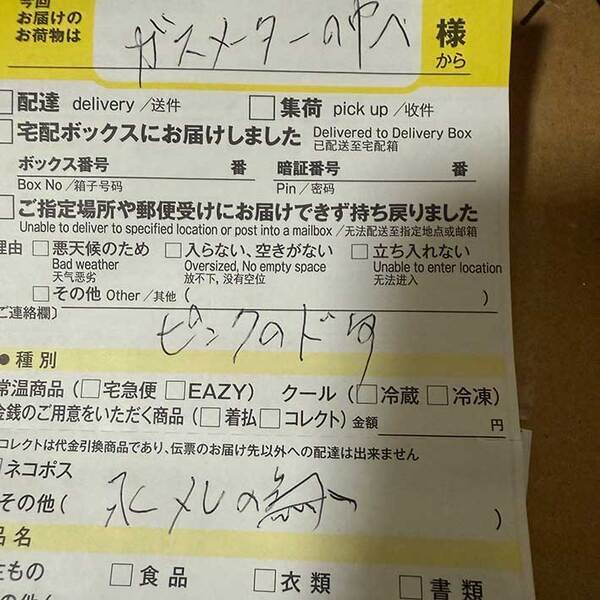 今回
お届けの
お荷物は
ガスメーターの中へ
様
から
配達 delivery/送件 集荷 pick up/收件
宅配ボックスにお届けしました Delivered to Delivery Box
已配送至宅配箱
ボックス番号 番 暗証番号 番
Box No/箱子号码 Pin/密码
ご指定場所や郵便受けにお届けできず持ち戻りました
Unable to deliver to specified location or post into a mailbox/无法配送至指定地点或邮箱
理由 悪天候のため 入らない、空きがない 立ち入れない
Bad weather Oversized, No empty space Unable to enter location
天气恶劣 放不下, 没有空位 无法进入
その他 Other/其他( )
ご連絡欄〕
ピンクのド
●種別
常温商品(宅急便 EAZY) クール(冷蔵 冷凍)
金銭のご用意をいただく商品(着払 コレクト)金額 円
コレクトは代金引換商品であり、伝票のお届け先以外への配達は出来ません
ネコポス
その他( の )
品名
生もの 食品 衣類 書類